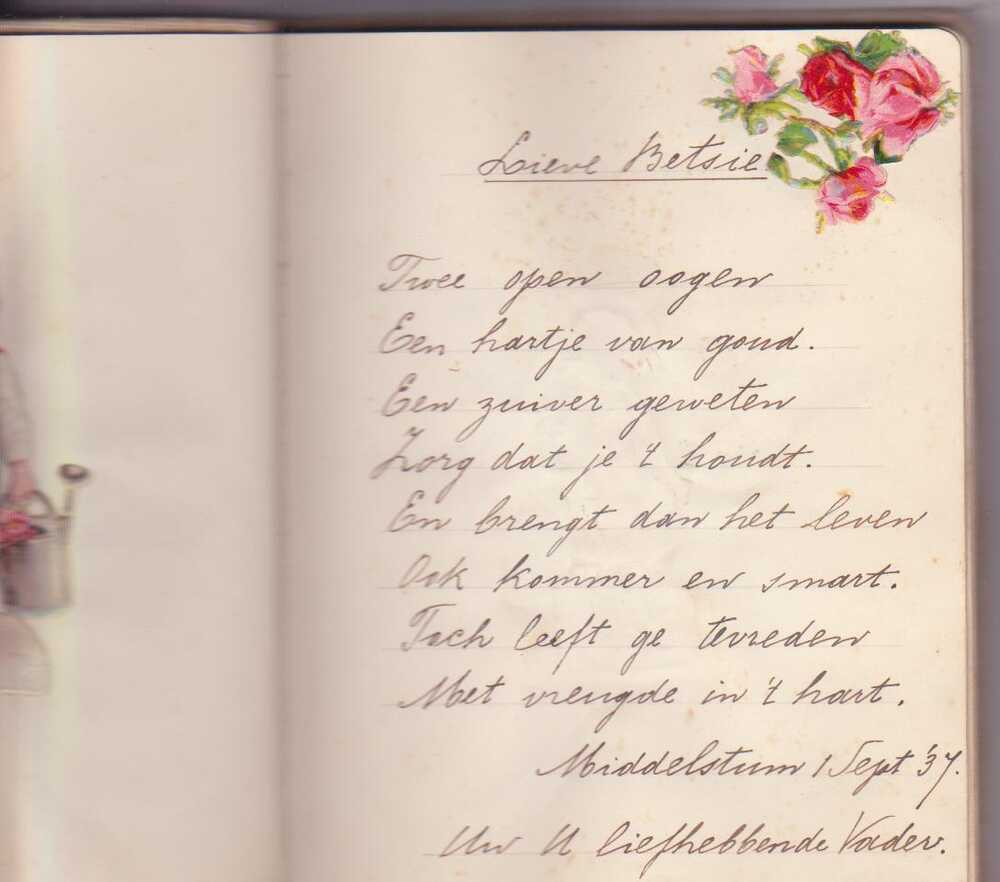 Lieve Betsie
Twee open oogen
Een hartje van goud.
Een zuiver geweten
Zorg dat je 't houdt.
En brengt dan het leven
Ook kommer en smart.
Toch leeft ge tevreden
Met vreugde in 't hart.
Middelstum 1 Sept '37.
Uw U liefhebbende Vader.